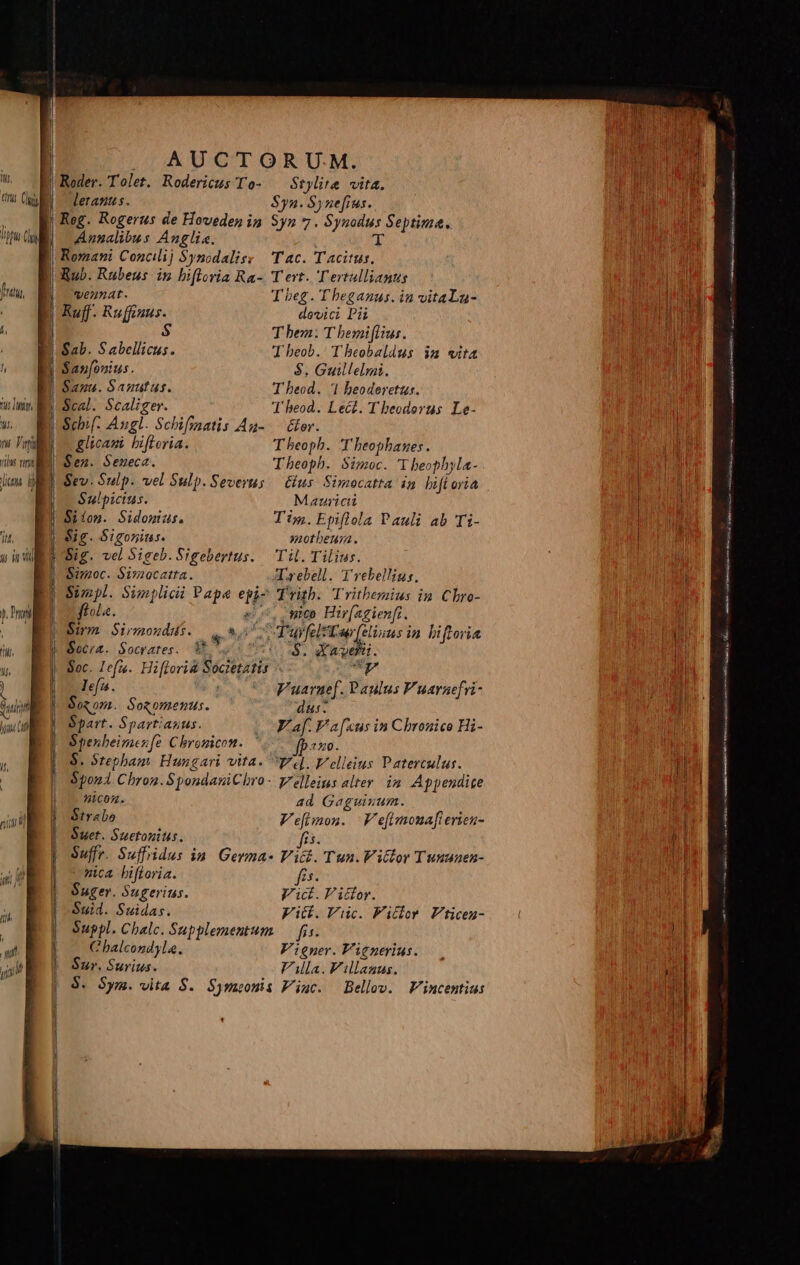 AUCTORUM.
Roder. Tolet. Rodericus To-
letanus.
Rog. Rogerus de Hoveden in
Annalibus Angliæ.
Romani Concilij Synodalis.
Rub. Rubeus in hiſtoria Ra-
vennat.
Ruff. Ruffinus.
S
Sab. Sabellicus.
Sanſonius.
Sanu. Sanutus.
Scal. Scaliger.
Schiſ. Angl. Schiſmatis An-
glicani hiſtoria.
Sen. Seneca.
Sev. Sulp. vel Sulp. Severus
Sulpicius.
Sidon. Sidonius.
Sig. Sigonius.
Sig. vel Sigeb. Sigebertus.
Simoc. Simocatta.
Simpl. Simplicii Papæ epi-
ſtolæ.
Sirm Sirmondus.
Socra. Socrates.
Soc. Ieſu. Hiſtoria Societatis
Ieſu.
Sozom. Sozomenus.
Spart. Spartianus.
Spenheimenſe Chronicon.
S. Stephani Hungari vita.
Spond Chron. SpondaniChro-
nicon.
Strabo
Suet. Suetonius.
Suffr. Suffridus in Germa-
nica hiſtoria.
Suger. Sugerius.
Suid. Suidas.
Suppl. Chalc. Supplementum
Chalcondylæ.
Sur. Surius.
S. Sym. vita S. Symeonis
Stylitæ vita.
Syn. Syneſius.
Syn 7. Synodus Septima.
T
Tac. Tacitus.
Tert. Tertullianus
Theg. Theganus. in vita Lu-
dovici Pii
Them. Themiſtius.
Theob. Theobaldus in vita
S. Guillelmi.
Theod. Theodoretus.
Theod. Lect. Theodorus Le-
ctor.
Theoph. Theophanes.
Theoph. Simoc. Theophyla-
ctus Simocatta in hiſtoria
Mauricii
Tim. Epiſtola Pauli ab Ti-
motheum.
Til. Tilius.
Trebell. Trebellius.
Trith. Trithemius in Chro-
nico Hirſagienſi.
Turſel. Turſelinus in hiſtoria
S. Xaverii.
V
Vuarneſ. Paulus Vuarnefri-
dus.
Vaſ. Vaſæus in Chronico Hi-
ſpano.
Vel. Velleius Paterculus.
Velleius alter in Appendice
ad Gaguinum.
Veſimon. Veſimonaſterien-
ſis.
Vict. Tun. Victor Tununen-
ſis.
Vict. Victor.
Vict. Vtic. Victor Vticen-
ſis.
Vigner. Vignerius.
Villa. Villanus.
Vinc. Bellov. Vincentius